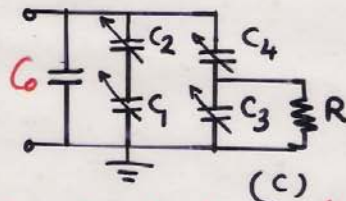 C₀
C₂
C₄
C₁
C₃
R
(C)